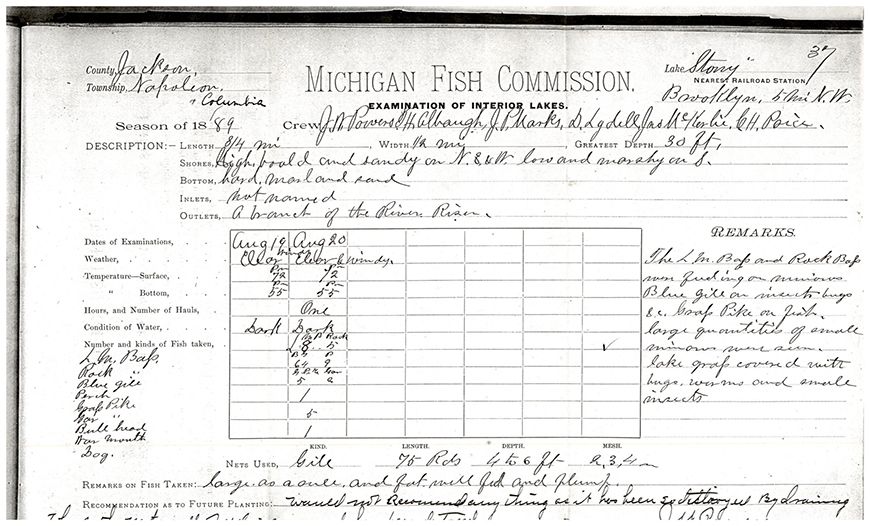 37
County, Jackson,
Township, Napoleon,
& Columbia
MICHIGAN FISH COMMISSION,
EXAMINATION OF INTERIOR LAKES.
Lake "Stony"
NEAREST RAILROAD STATION,
Brooklyn, 5 mi N.W.
Season of 1889 Crew, J.W. Powers, J.P. Marks, Jas McKerlie, C.H. Paice.
DESCRIPTION:— LENGTH, 3/4 mi, WIDTH 1/2 mi, GREATEST DEPTH 30 ft,
SHORES, High, bould and sandy on N. & W. low and marshy on S.
BOTTOM, hard, marl and sand
INLETS, not named
OUTLETS, A branch of the River Risen.
REMARKS.
Dates of Examinations, Aug 19 Aug 20
Weather, Clear windy Clear & windy.
Temperature—Surface, Pm 72 Pm 72
" Bottom, Pm 55 Pm 55
Hours, and Number of Hauls, One
Condition of Water, Dark Dark
Number and kinds of Fish taken,
L. M. Bass.
Rock "
Blue gill
Perch
Grass Pike
Gar "
Bull head
War mouth
Dog.
8 5
64 9
5 2
1
5
1
The L M. Bass and Rock Bass
were feeding on minows
Blue Gill on insects bugs
&c. Grass Pike on fish.
large quantities of small
minows were seen.
lake grass covered with
bugs, worms and small
insects
KIND. LENGTH. DEPTH. MESH.
NETS USED, Gill 75 Rds 4 to 6 ft 2, 3, 4 in
REMARKS ON FISH TAKEN: large as a rule, and fat, well fed and plump.
RECOMMENDATION AS TO FUTURE PLANTING: would not recommend any thing as it has been so By draining